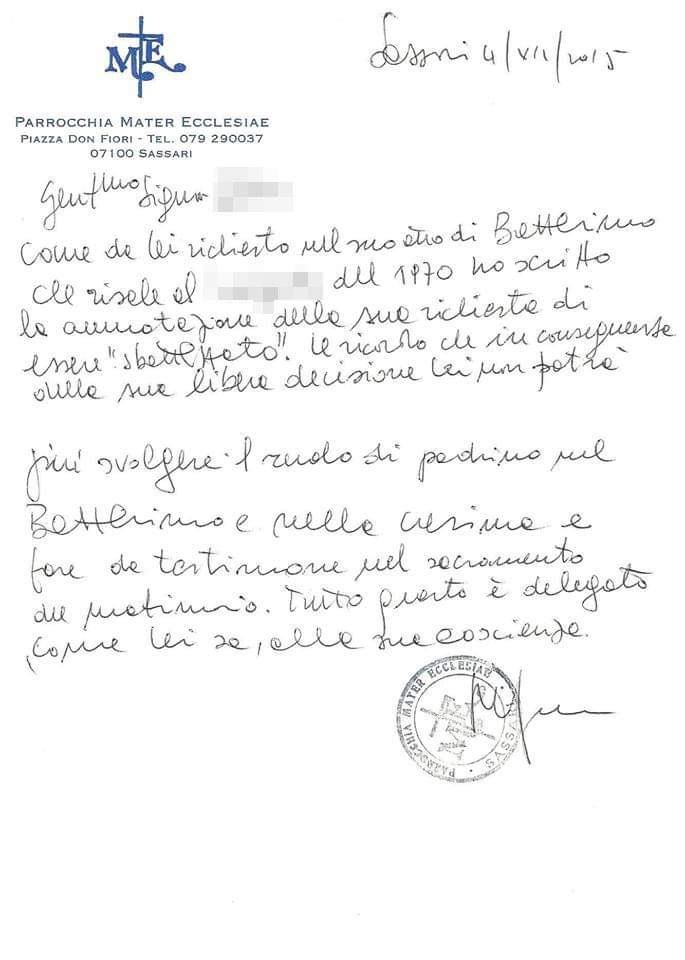 Sassari 4/XII/2015
M E
PARROCCHIA MATER ECCLESIAE
PIAZZA DON FIORI - TEL. 079 290037
07100 SASSARI
Gent.mo Signor
Come da lei richiesto nel suo atto di Battesimo
che risale al del 1970 ho scritto
la annotazione della sua richiesta di
essere "sbattezzato". Le ricordo che in conseguenza
della sua libera decisione lei non potrà
più svolgere il ruolo di padrino nel
Battesimo e nella cresima e
fare da testimone nel sacramento
del matrimonio. Tutto questo è delegato
come lei sa, alla sua coscienza.
PARROCCHIA MATER ECCLESIAE
SASSARI